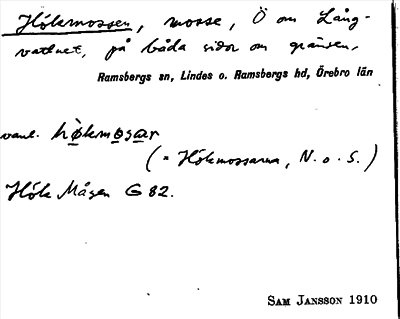 Hökmossen, mosse, Ö om Lång-
vattnet, på båda sidor om gränsen,
Ramsbergs sn, Lindes o. Ramsbergs hd, Örebro län
vanl. hökmosar
(= Hökmossarna, N. o. S.)
Hök Måsen G 82.
SAM JANSSON 1910